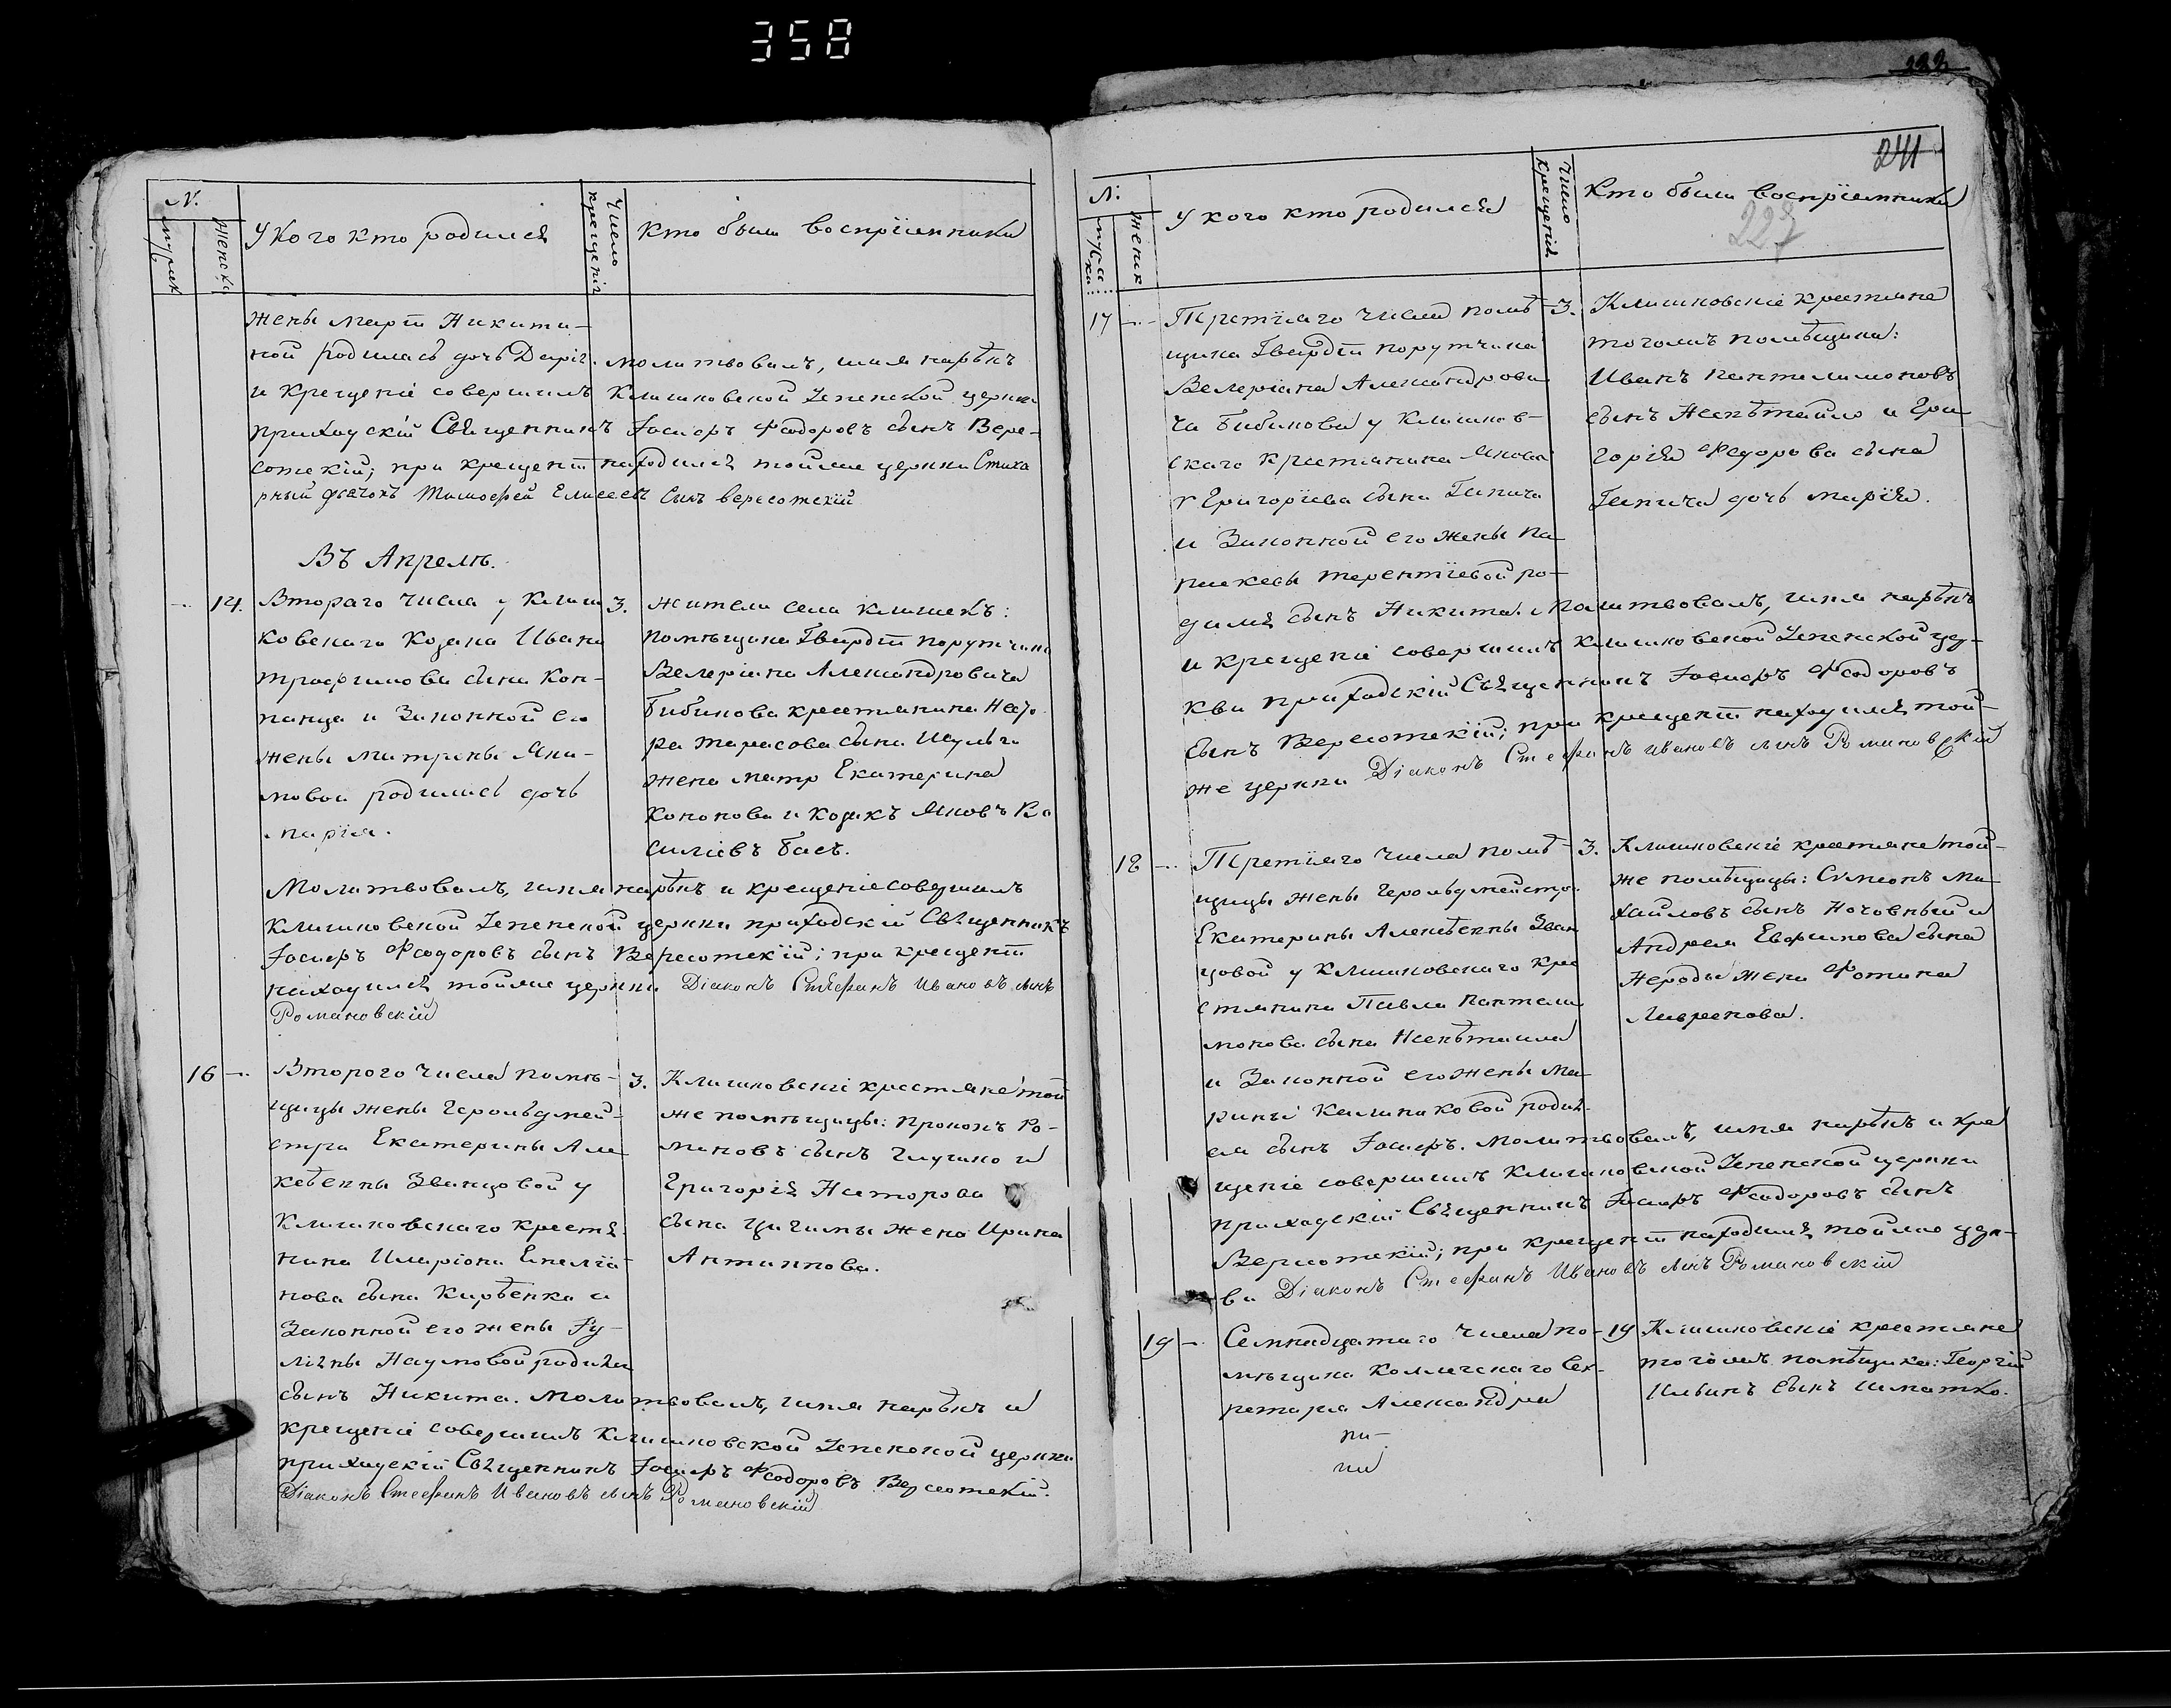 358
N.
мужск
женск.
У Кого кто родился
Число крещенія
Кто были воспріемники
жены Марѳы Никити-
ной родилась дочь Дарія. молитвовалъ, имя нарѣкъ
и крещеніе совершилъ Клишковской Успенской церкви
приходскій Священникъ Іосифъ Феодоровъ сынъ Вере-
сотскій; при крещеніи находился тойже церкви Стиха
рный дьячокъ Тимофей Елисеевъ сынъ Вересотскій
Въ Апрелѣ.
14.
Втораго числа у Клиш
ковскаго Козака Ивана
Трофимова сына Кон-
панца и Законной его
жены Матрены Яки-
мовой родилась дочь
Марія.
3.
жители села Клишекъ:
помѣщика Гвардіи порутчика
Велеріана Александровича
Бибикова крестянина Несто
ра Тарасова сына Шульги
жена Екатерина
Кононова и козакъ Яковъ Ва
силіевъ Басъ.
Молитвовалъ, имя нарѣкъ и крещеніе совершилъ
Клишковской Успенской церкви приходскій Священникъ
Іосифъ Феодоровъ сынъ Вересотскій; при крещеніи
находился тойже церкви Діаконъ Стефанъ Ивановъ сынъ
Романовскій
16
Второго числа помѣ-
щицы жены Герольдмей-
стра Екатерины Але
ксѣевны Званцовой у
Клишковскаго крестя-
нина Иларіона Емелія-
нова сына Кирѣенка и
Законной его жены Іу-
ліяны Наумовой родился
сынъ Никита. Молитвовалъ, имя нарѣкъ и
крещеніе совершилъ Клишковской Успенской церкви
приходскій Священникъ Іосифъ Феодоровъ Вересотскій.
Діаконъ Стефанъ Ивановъ сынъ Романовскій
3.
Клишковскіе крестяне той
же помѣщицы: Прокопъ Ро-
мановъ сынъ Глушко и
Григорія Несторова
сына Цигимы жена Ирина
Антипова.
222
241
227
N.
мужск
женск
У кого кто родился
Число крещенія
Кто были воспріемники
17
Третіяго числа помѣ
щика Гвардіи порутчика
Велеріана Александрови
ча Бибикова у Клишков-
скаго крестянина Якова
Григоріева сына Гапича
и Законной его жены Па
раскевы Терентіевой ро-
дился сынъ Никита. Молитвовалъ, имя нарѣкъ
и крещеніе совершилъ Клишковской Успенской цер-
кви приходскій Священникъ Іосифъ Феодоровъ
сынъ Вересотскій; при крещеніи находился той-
же церкви Діаконъ Стефанъ Ивановъ сынъ Романовскій
3.
Клишковскіе крестяне
тогожъ помѣщика:
Иванъ Пантелимоновъ
сынъ Несѣтайло и Гри
горія Федорова сына
Гапича дочь Марія.
18
Третіяго числа помѣ
щицы жены Герольдмейстра
Екатерины Алексѣевны Зван
цовой у Клишковскаго кре
стянина Павла Пантели
монова сына Несѣтаила
и Законной его жены Ма
рины Калиниковой родил-
ся сынъ Іосифъ. Молитвовалъ, имя нарѣкъ и кре
щеніе совершилъ Клишковской Успенской церкви
приходскій Священникъ Іосифъ Феодоровъ сынъ
Вересотскій; при крещеніи находился тойже цер-
ви Діаконъ Стефанъ Ивановъ сынъ Романовскій
3.
Клишковскіе крестяне той-
же помѣщицы: Сѵмеонъ Ми
хайловъ сынъ Ночовный и
Андрея Евфимова сына
Нероды жена Фотина
Лаврентова.
19
Семнадцатаго числа по-
мѣщика Коллежскаго Сек-
ретаря Александра
19
Клишковскіе крестяне
тогожъ помѣщика: Георгій
Ильинъ сынъ Шматко.